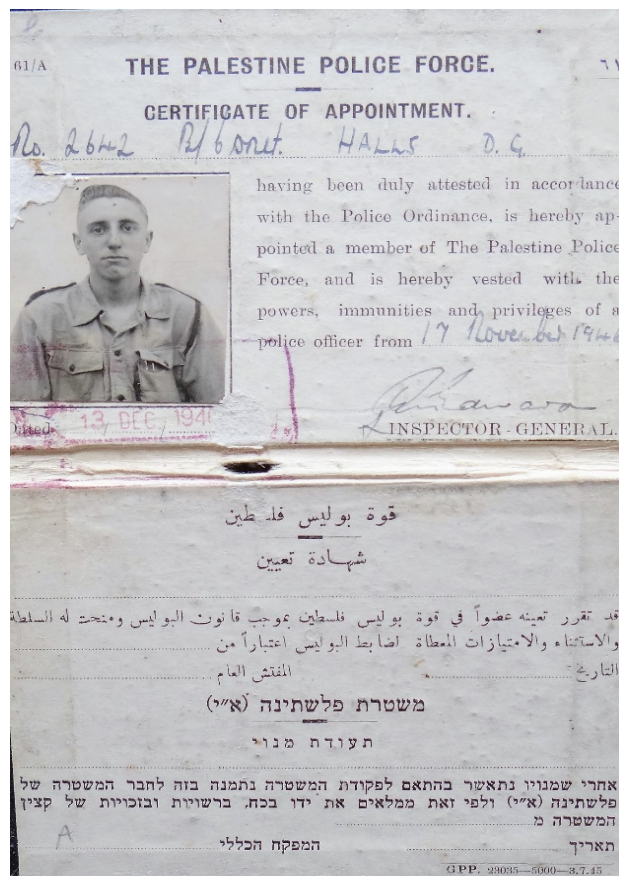 61/A
THE PALESTINE POLICE FORCE.
CERTIFICATE OF APPOINTMENT.
No. 2642 B/Const. HALLS D. G
having been duly attested in accordance
with the Police Ordinance, is hereby ap-
pointed a member of The Palestine Police
Force, and is hereby vested with the
powers, immunities and privileges of a
police officer from 17 November 1946
Dated 13 DEC 194
INSPECTOR-GENERAL.
قوة بوليس فلسطين
شهادة تعيين
قد تقرر تعينه عضواً في قوة بوليس فلسطين بموجب قانون البوليس ومنحت له السلطة
والاستثناء والامتيازات المعطاة لضابط البوليس اعتباراً من
التاريخ المفتش العام
משטרת פלשתינה (א״י)
תעודת מנוי
אחרי שמנויו נתאשר בהתאם לפקודת המשטרה נתמנה בזה לחבר המשטרה של
פלשתינה (א״י) ולפי זאת ממלאים את ידו בכח, ברשויות ובזכויות של קצין
המשטרה מ
תאריך המפקח הכללי
A
GPP. 29035—5000—3.7.45